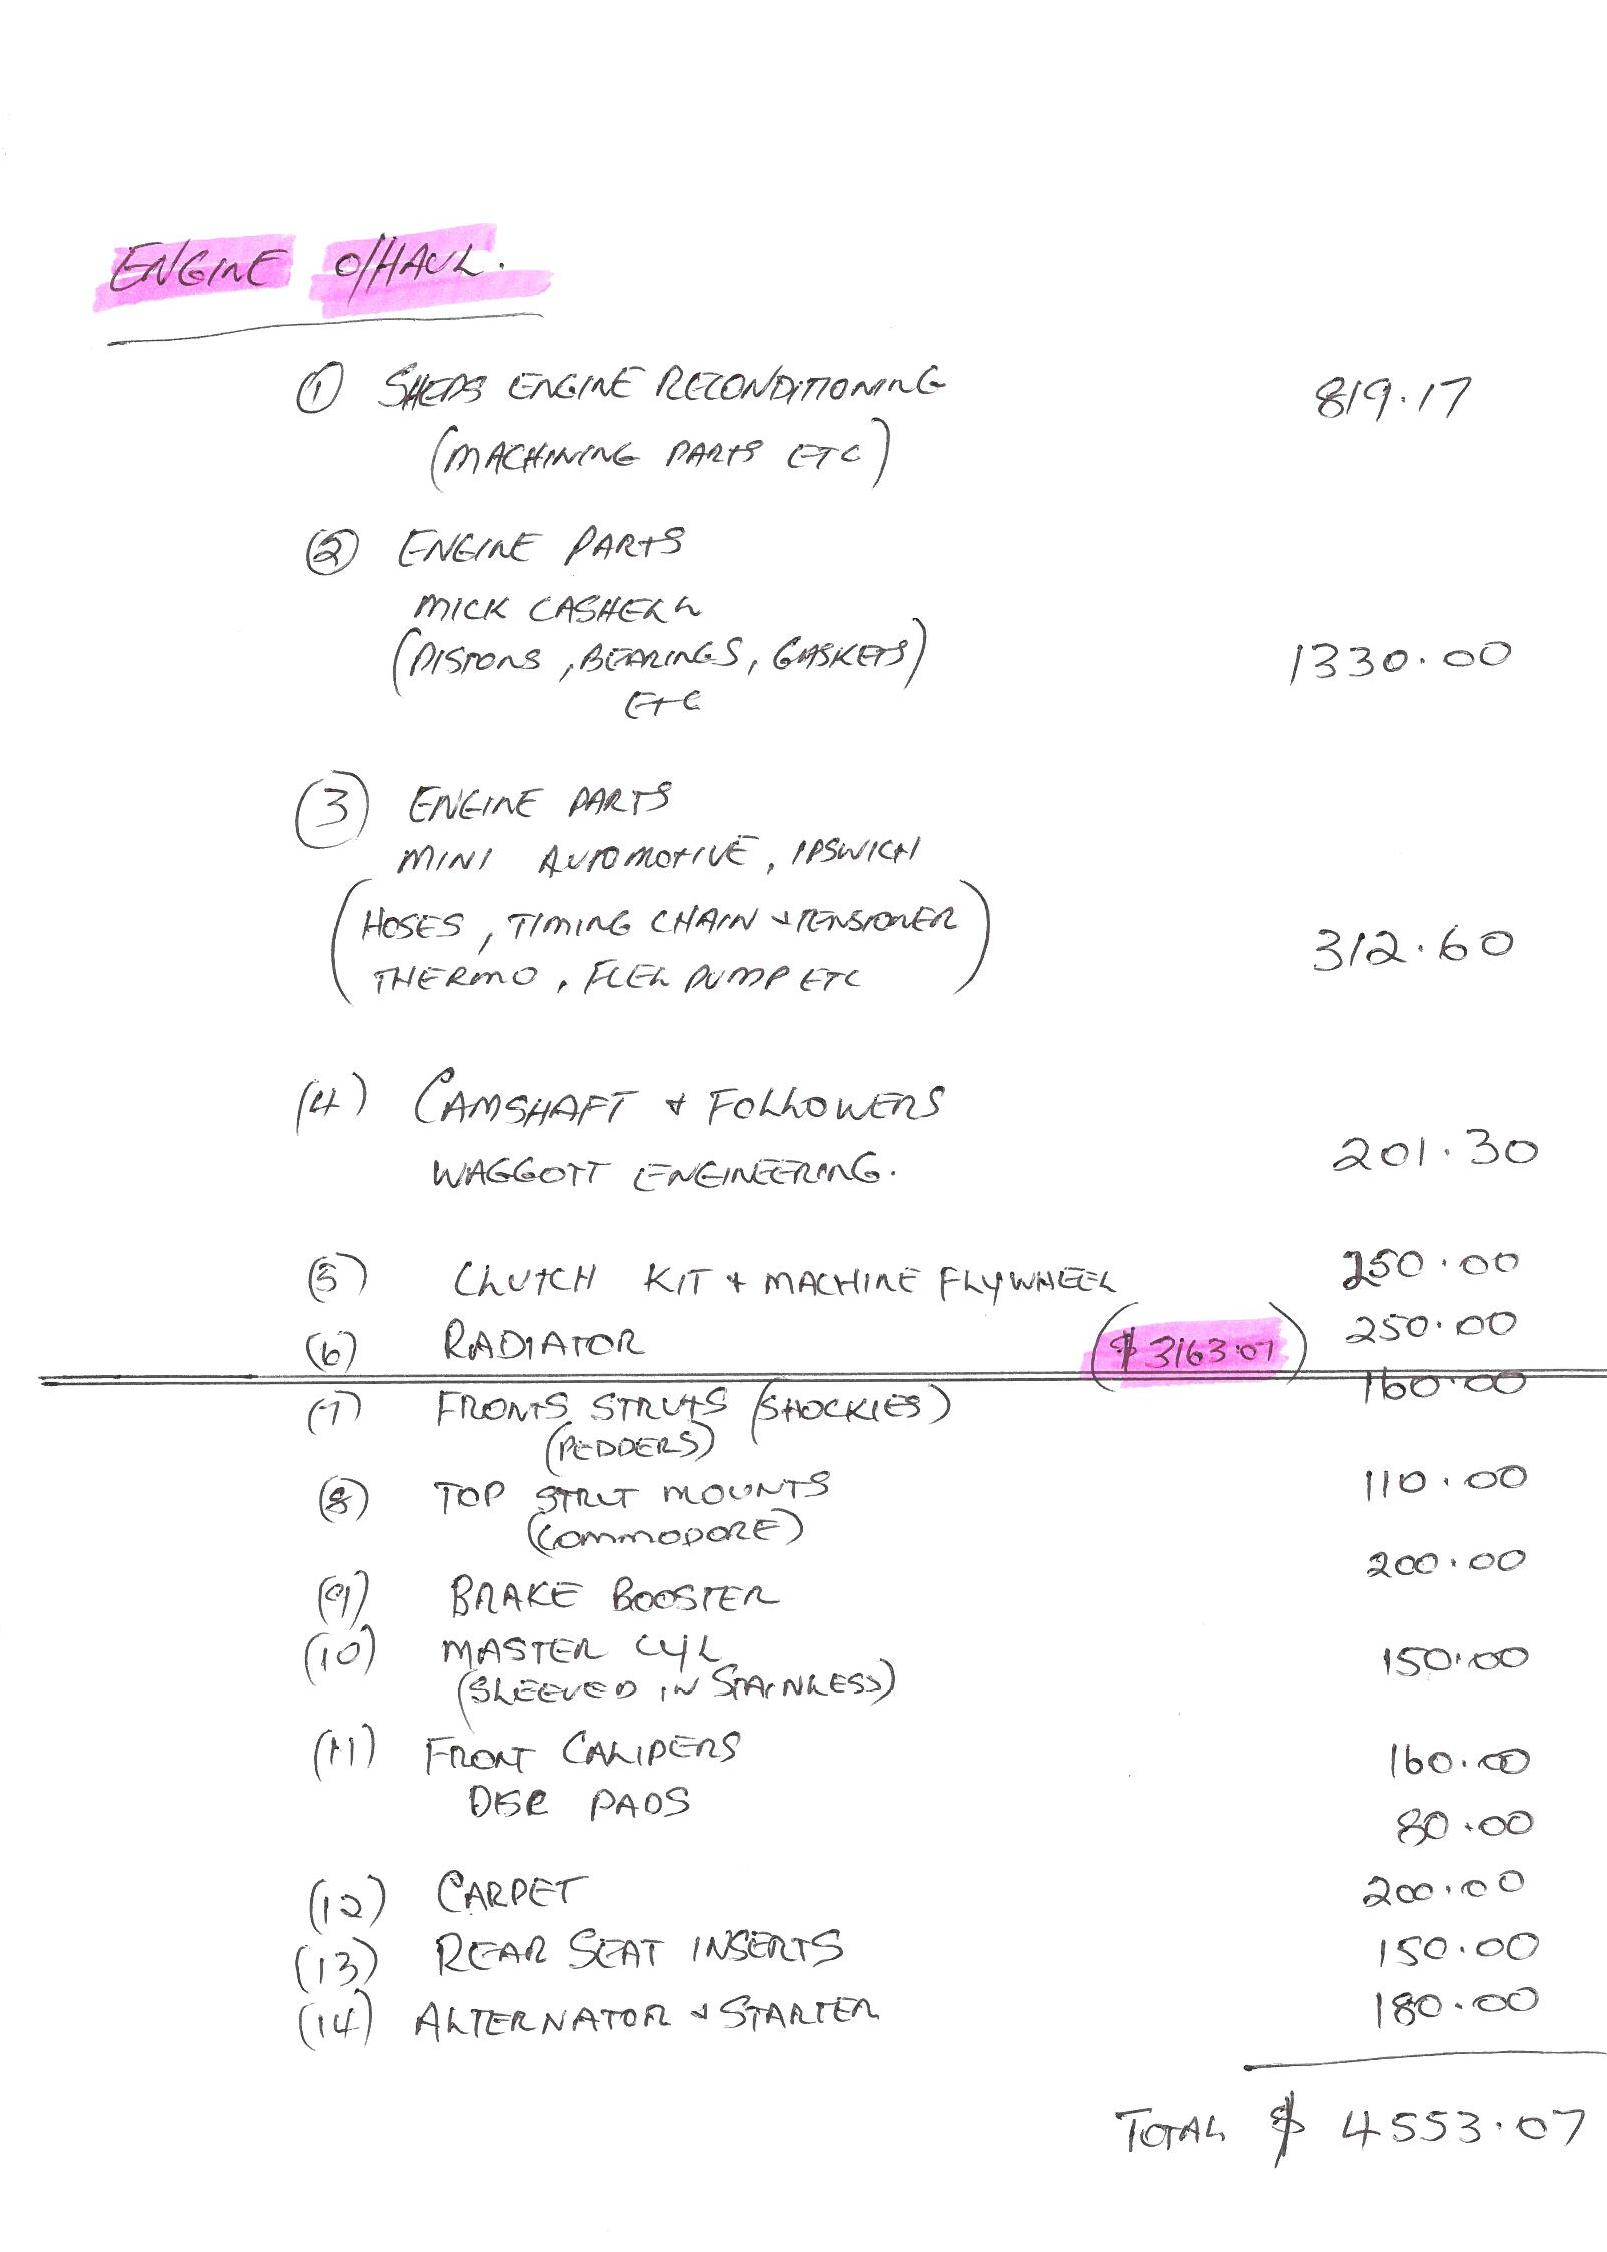 ENGINE O/HAUL.
① SHEDS ENGINE RECONDITIONING 819.17
(MACHINING PARTS ETC)
② ENGINE PARTS
MICK CASHELL
(PISTONS, BEARINGS, GASKETS) 1330.00
ETC
③ ENGINE PARTS
MINI AUTOMOTIVE, IPSWICH
(HOSES, TIMING CHAIN & TENSIONER 312.60
THERMO, FUEL PUMP ETC)
(4) CAMSHAFT & FOLLOWERS
WAGGOTT ENGINEERING. 201.30
(5) CLUTCH KIT & MACHINE FLYWHEEL 250.00
(6) RADIATOR ($3163.07) 250.00
(7) FRONTS STRUTS (SHOCKIES) 160.00
(PEDDERS)
(8) TOP STRUT MOUNTS 110.00
(COMMODORE)
(9) BRAKE BOOSTER 200.00
(10) MASTER CYL 150.00
(SLEEVED IN STAINLESS)
(11) FRONT CALIPERS 160.00
DISC PADS 80.00
(12) CARPET 200.00
(13) REAR SEAT INSERTS 150.00
(14) ALTERNATOR & STARTER 180.00
TOTAL $ 4553.07